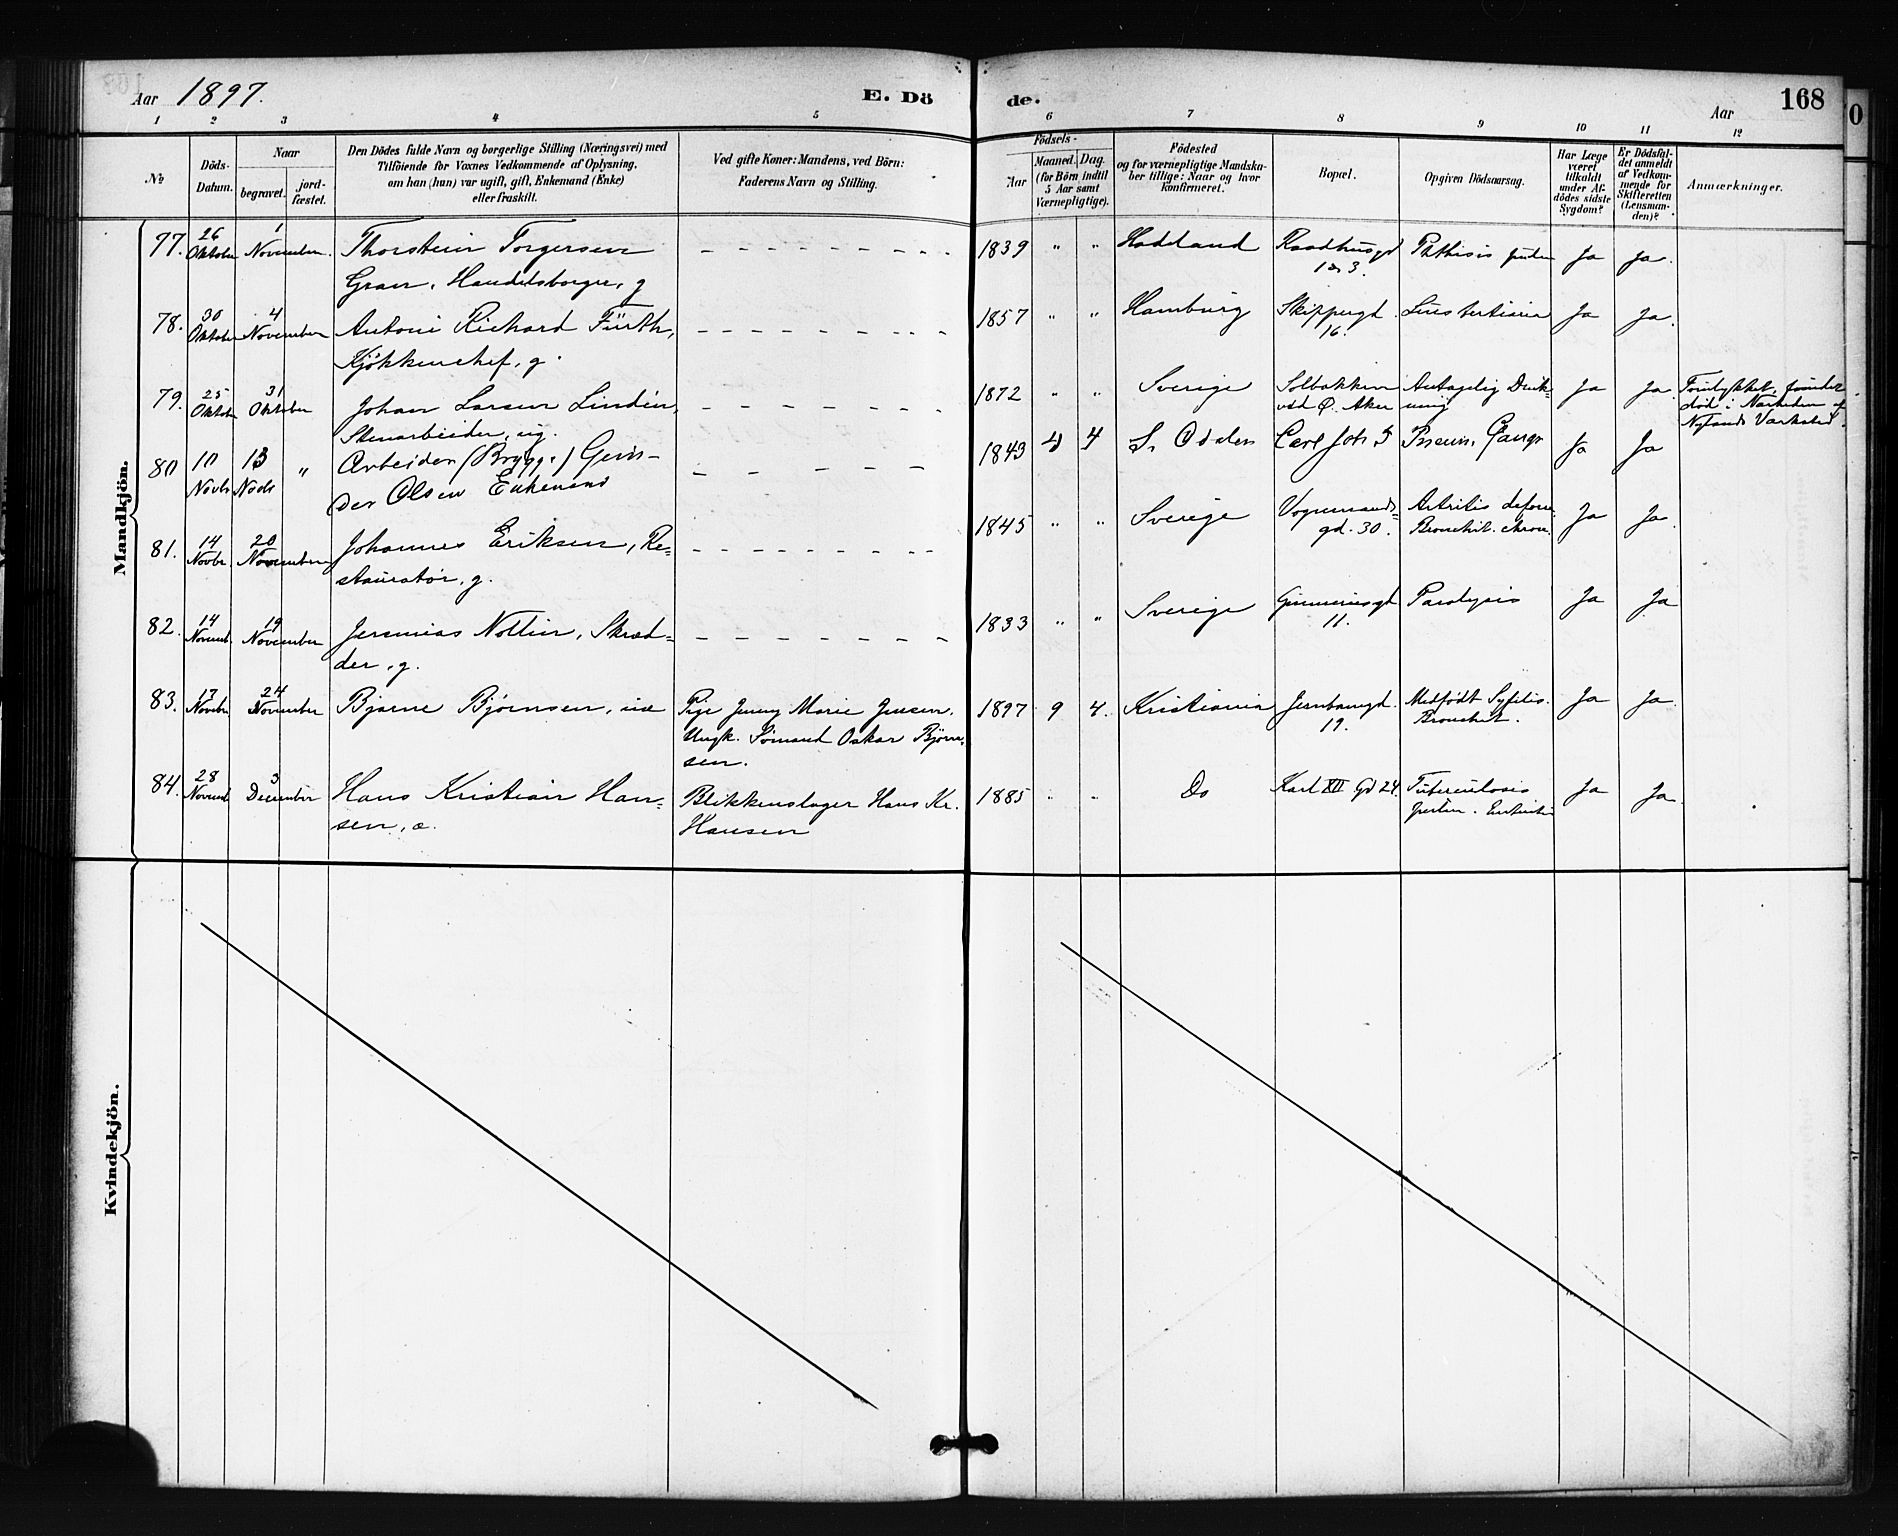 Aar 1897.
E. Dö
de.
Aar
168
1 2 3 4 5 6 7 8 9 10 11 12
№
Döds-
Datum.
Naar
begravet.
jord-
fæstet.
Den Dödes fulde Navn og borgerlige Stilling (Næringsvei) med
Tilföiende for Voxnes Vedkommende af Oplysning,
om han (hun) var ugift, gift, Enkemand (Enke)
eller fraskilt.
Ved gifte Koner: Mandens, ved Börn:
Faderens Navn og Stilling.
Födsels-
Aar
Maaned.
Dag.
(for Börn indtil
5 Aar samt
Værnepligtige).
Födested
og for værnepligtige Mandska-
ber tillige: Naar og hvor
konfirmeret.
Bopæl.
Opgiven Dödsaarsag.
Har Læge
været
tilkaldt
under Af-
dödes sidste
Sygdom?
Er Dödsfal-
det anmeldt
af Vedkom-
mende for
Skifteretten
(Lensman-
den)?
Anmærkninger.
Mandkjön.
77. 26 Oktober 1 November Thorstein Torgersen
Gran, Handelsborger, g
1839 " " Hadeland Raadhusgd
1 3. Phthisis Ja Ja.
78. 30 Oktober 4 November Antoni Richard Fürth,
Kjökkenchef, g.
1857 " " Hamburg Skippergd.
16. Lues tertiaria Ja Ja.
79. 25 Oktober 31 Oktober Johan Larsen Lindén,
Stenarbeider, ug.
1872 " " Sverige Solbakken
ved Ø. Aker Antagelig Druk-
ning Ja Ja. Forulykket, funden
død i Nærheden af
Nylands Værksted.
80 10 Novbr 13 Novbr " Arbeider (Brygge) Gun-
der Olsen Enkemand
1843 4 S. Odalen Carl Joh 5 Pneum. Gangr Ja Ja
81. 14 Novbr. 20 November Johannes Eriksen, Re-
stauratør, g.
1845 " " Sverige Vognmands-
gd. 30. Artritis deform.
Bronchit. chron. Ja Ja.
82. 14 Novemb. 19 November Jeremias Nottin, Skræd-
der, g.
1833 " " Sverige
11. Paralysis Ja Ja
83. 17 Novbr 24 November Bjarne Bjørnsen, uæ Pige Jenny Marie Jensen.
Ungk. Sømand Oskar Bjørn-
sen.
1897 9 4. Kristiania Jernbanegd.
19. Medfødt Syfilis.
Bronchit. Ja Ja.
84. 28 Novemb 3 December Hans Kristian Han-
sen, æ. Blikkenslager Hans Kr.
Hansen
1885 " " Do Karl XII Gd 24. Tuberculosis
Ja Ja.
Kvindekjön.